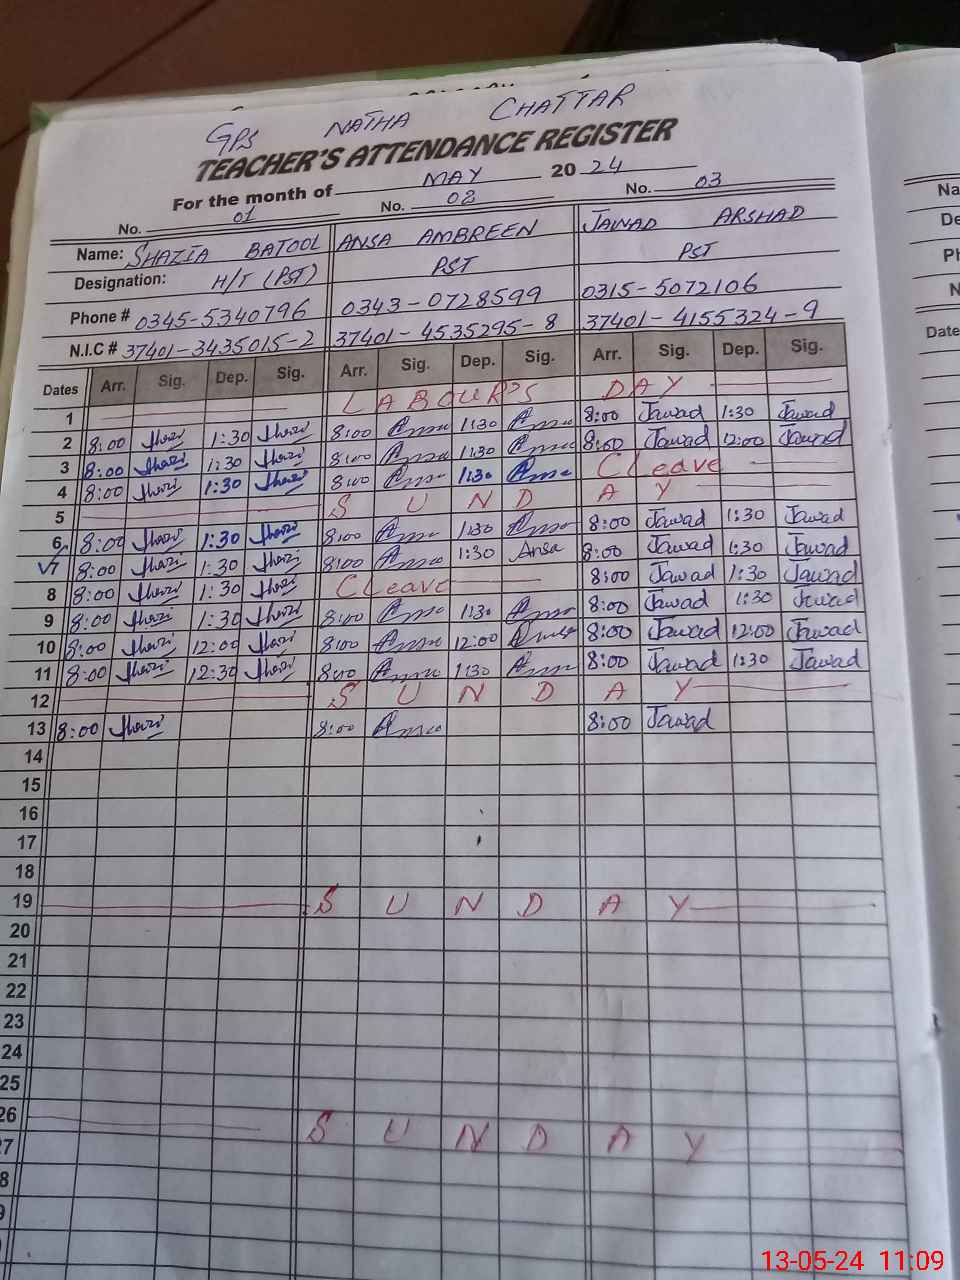 GPS NATHA CHATTAR
TEACHER'S ATTENDANCE REGISTER
For the month of MAY 20 24
No. 01 No. 02 No. 03
Name: SHAZIA BATOOL ANSA AMBREEN JAWAD ARSHAD
Designation: H/T (PST) PST PST
Phone # 0345-5340796 0343-0728599 0315-5072106
N.I.C # 37401-3435015-2 37401-4535295-8 37401-4155324-9
Dates Arr. Sig. Dep. Sig. Arr. Sig. Dep. Sig. Arr. Sig. Dep. Sig.
1 LABOUR'S DAY
2 8:00 Shazi 1:30 Shazi 8:00 1:30 8:00 Jawad 1:30 Jawad
3 8:00 Shazi 1:30 Shazi 8:00 1:30 8:00 Jawad 12:00 Jawad
4 8:00 Shazi 1:30 Shazi 8:00 1:30 C Leave
5 S U N D A Y
6 8:00 Shazi 1:30 Shazi 8:00 1:30 8:00 Jawad 1:30 Jawad
7 8:00 Shazi 1:30 Shazi 8:00 1:30 Ansa 8:00 Jawad 1:30 Jawad
8 8:00 Shazi 1:30 Shazi C Leave 8:00 Jawad 1:30 Jawad
9 8:00 Shazi 1:30 Shazi 8:00 1:30 8:00 Jawad 1:30 Jawad
10 8:00 Shazi 12:00 Shazi 8:00 12:00 8:00 Jawad 12:00 Jawad
11 8:00 Shazi 12:30 Shazi 8:00 1:30 8:00 Jawad 1:30 Jawad
12 S U N D A Y
13 8:00 Shazi 8:00 8:00 Jawad
14
15
16
17
18
19 S U N D A Y
20
21
22
23
24
25
26 S U N D A Y
7
8
9
Na
De
Ph
N
Date
13-05-24 11:09